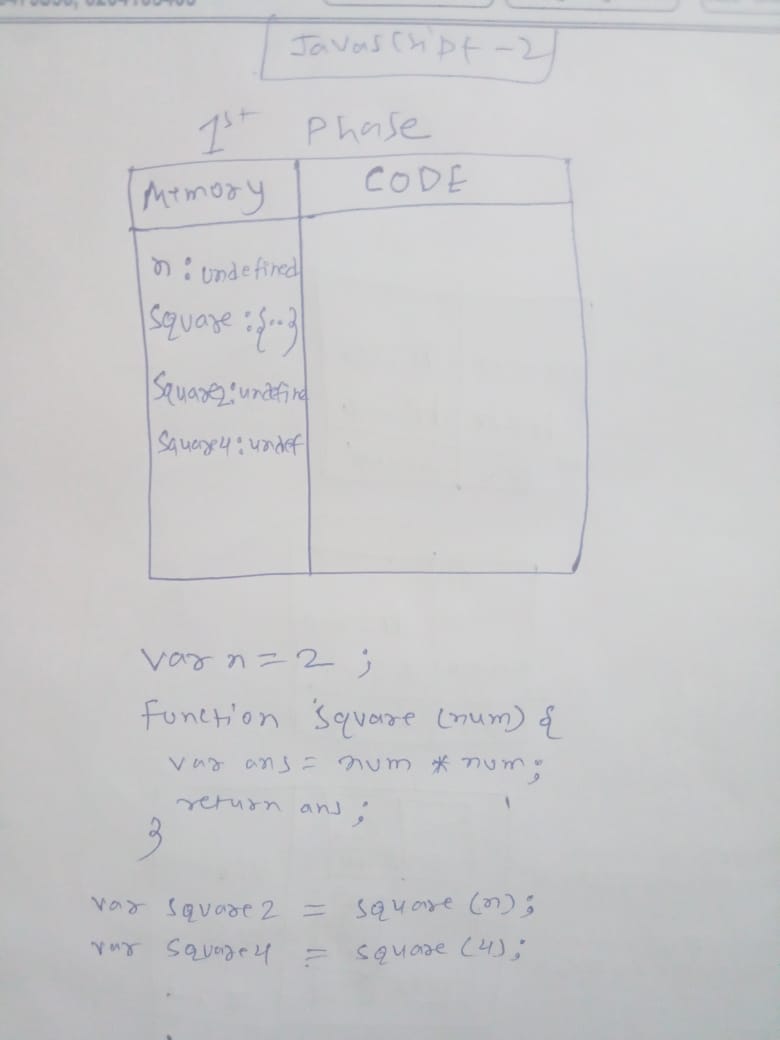 Javascript-2
1st Phase
Memory CODE
n : undefined
Square : {..}
Square2 : undefined
Square4 : undef
var n = 2 ;
Function square (num) {
var ans = num * num ;
return ans ;
}
var square2 = square (n) ;
var square4 = square (4) ;